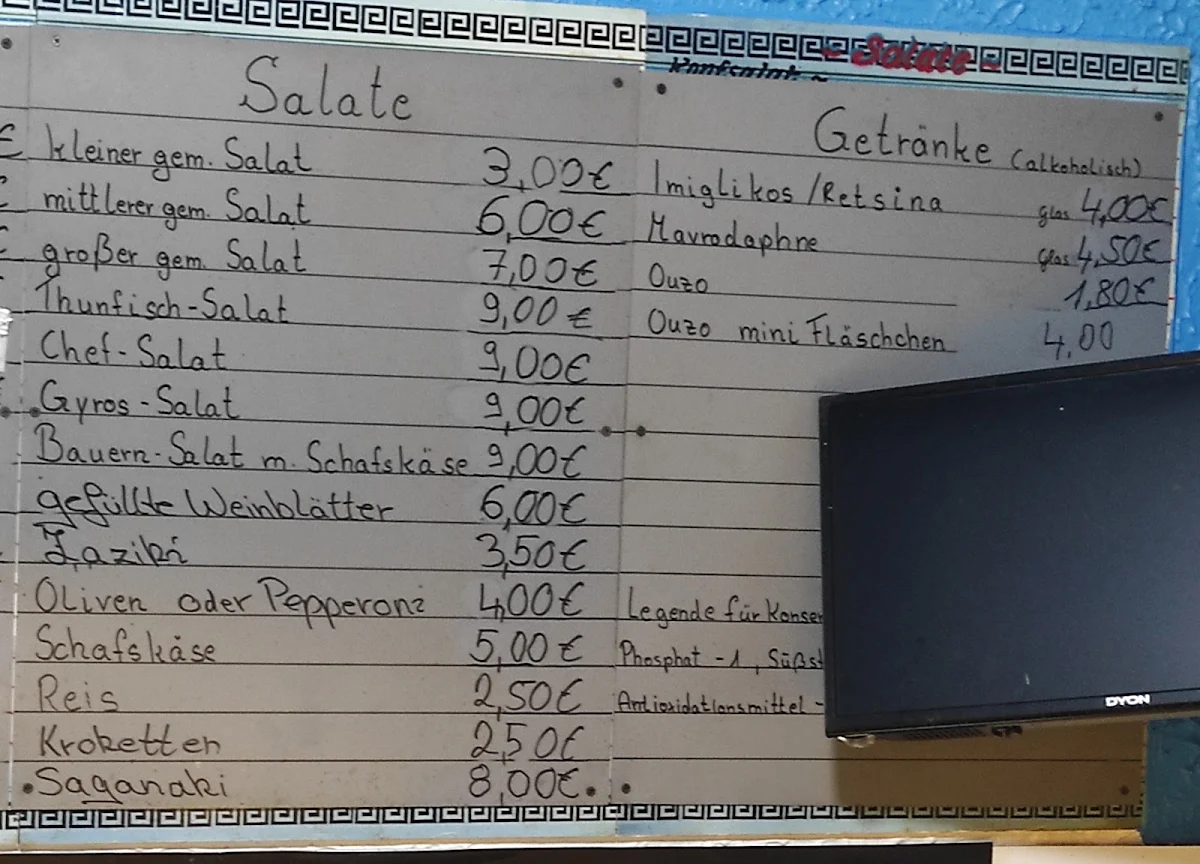 ~ Salate ~
Salate
kleiner gem. Salat 3,00€
mittlerer gem. Salat 6,00€
großer gem. Salat 7,00€
Thunfisch-Salat 9,00€
Chef-Salat 9,00€
Gyros-Salat 9,00€
Bauern-Salat m. Schafskäse 9,00€
gefüllte Weinblätter 6,00€
Zaziki 3,50€
Oliven oder Pepperoni 4,00€
Schafskäse 5,00€
Reis 2,50€
Kroketten 2,50€
Saganaki 8,00€
Getränke (alkoholisch)
Imiglikos/Retsina glas 4,00€
Mavrodaphne glas 4,50€
Ouzo 1,80€
Ouzo mini Fläschchen 4,00
Legende für Konser
Phosphat -1, Süßst
Antioxidationsmittel -
DYON